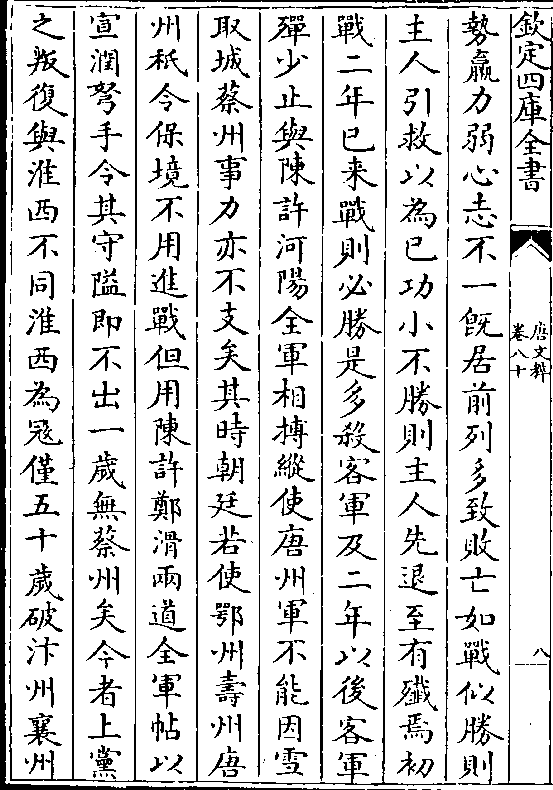 欽定四庫全書
唐文粹
卷八十
八
勢羸力弱心志不一既居前列多致敗亡如戰似勝則
主人引救以為已功小不勝則主人先退至有殲焉初
戰二年已来戰則必勝是多殺客軍及二年以後客軍
殫少止與陳許河陽全軍相搏縱使唐州軍不能因雪
取城蔡州事力亦不支矣其時朝廷若使鄂州壽州唐
州秖令保境不用進戰但用陳許鄭滑兩道全軍帖以
宣潤弩手令其守隘即不出一歲無蔡州矣今者上黨
之叛復與淮西不同淮西為冦僅五十歲破汴州襄州